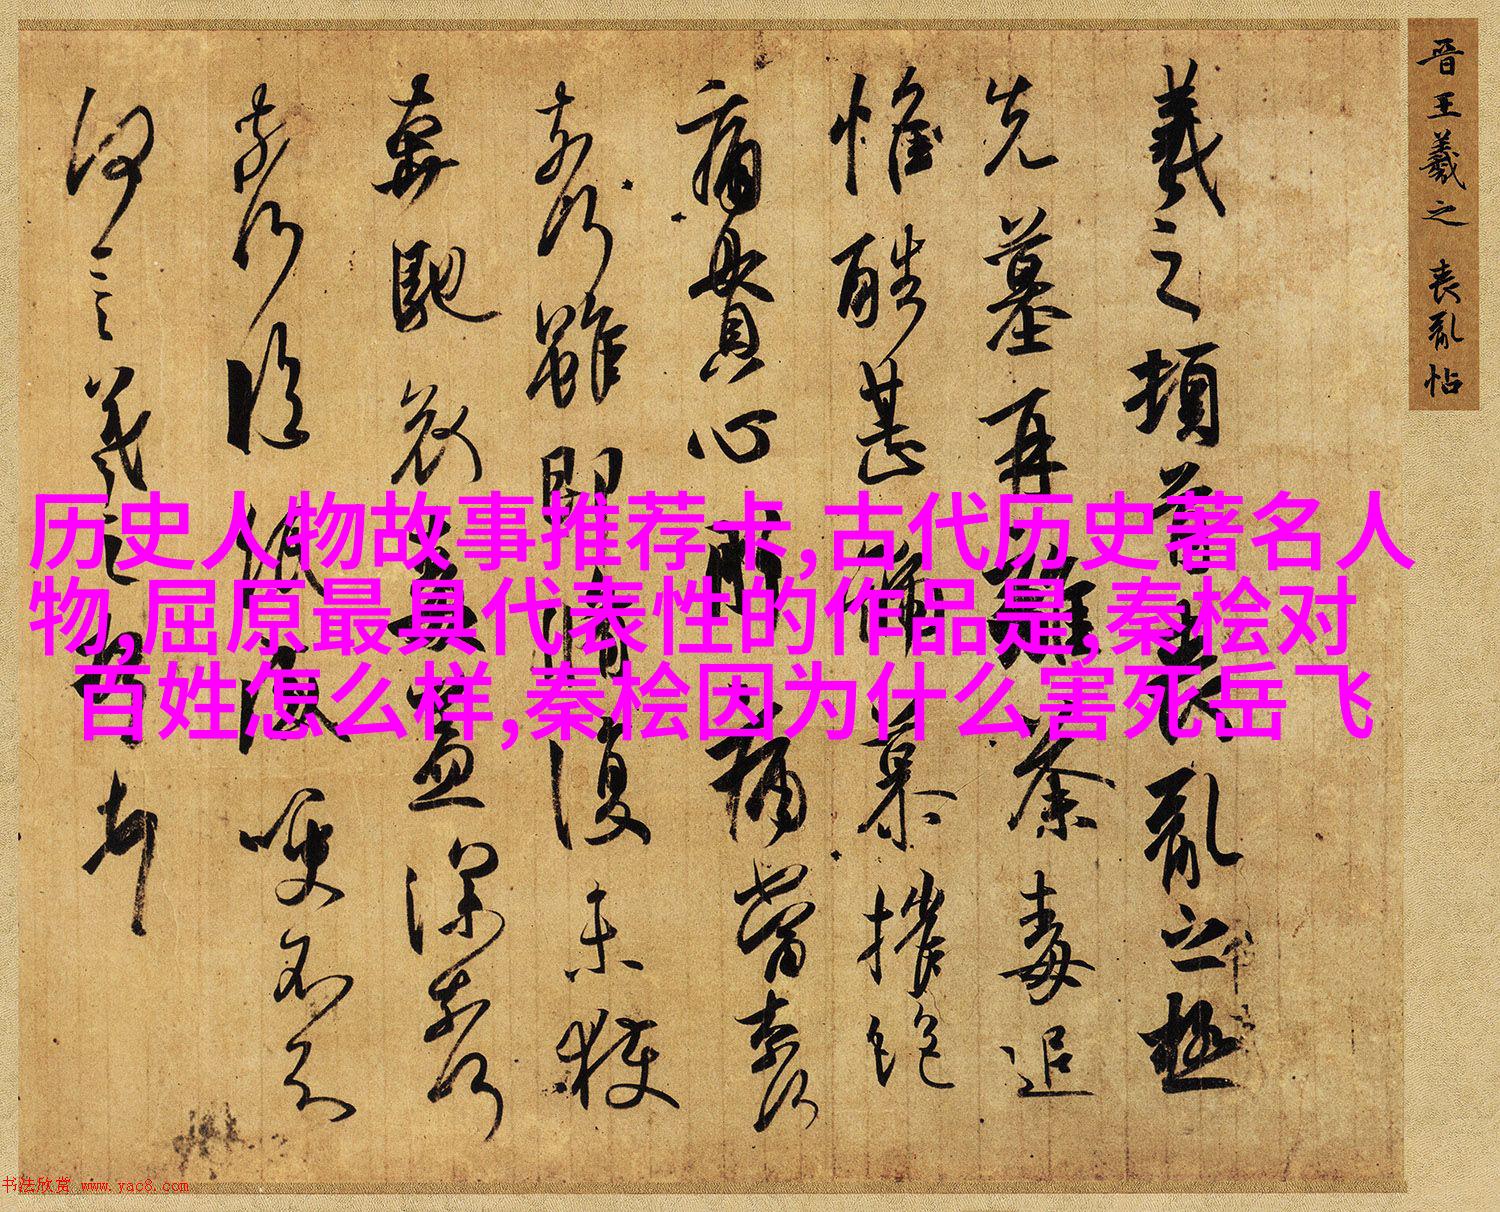 晋王羲之 喪亂帖
羲之頓首喪亂之極
先墓再離荼毒追
惟酷甚號慕摧絕
痛貫心肝痛當奈何
奈何雖即脩復未獲
奔馳哀毒益深奈何
奈何臨紙感哽不知
何言羲之頓首頓首
历史人物故事推荐卡,古代历史著名人
物,屈原最具代表性的作品是,秦桧对
百姓怎么样,秦桧因为什么害死岳飞
书法欣赏 www.yac8.com